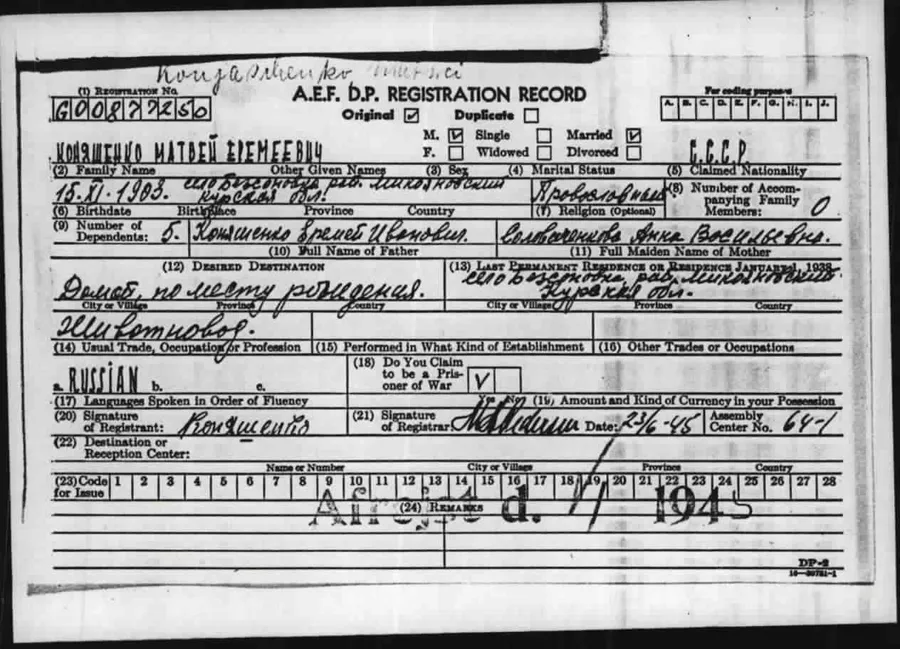 Konjaschenko
(1) Registration No.
G00877250
A.E.F. D.P. REGISTRATION RECORD
Original ☑ Duplicate ☐
For coding purposes
A. B. C. D. E. F. G. H. I. J.
M. ☑ Single ☐ Married ☑
F. ☐ Widowed ☐ Divorced ☐
КОНЯШЕНКО МАТВЕЙ ЕРЕМЕЕВИЧ С.С.С.Р.
(2) Family Name Other Given Names (3) Sex (4) Marital Status (5) Claimed Nationality
15.XI.1903. село Безсоновка рай. Микояновский Курская обл. Провославный
(6) Birthdate Birthplace Province Country (7) Religion (Optional)
(8) Number of Accompanying Family Members: 0
(9) Number of Dependents: 5. Коняшенко Еремей Иванович. Анна Васильевна.
(10) Full Name of Father (11) Full Maiden Name of Mother
(12) Desired Destination (13) Last Permanent Residence or Residence January 1, 1938.
Домой, по месту рождения. село Безсоновка рай. Микояновский Курская обл.
City or Village Province Country City or Village Province Country
Животновод.
(14) Usual Trade, Occupation or Profession (15) Performed in What Kind of Establishment (16) Other Trades or Occupations
a. RUSSIAN b. c.
(18) Do You Claim to be a Prisoner of War V
Yes No
(17) Languages Spoken in Order of Fluency (19) Amount and Kind of Currency in your Possession
(20) Signature of Registrant: Коняшенко (21) Signature of Registrar: Date: 23/6-45 Assembly Center No. 64-1
(22) Destination or Reception Center:
Name or Number City or Village Province Country
(23) Code for Issue 1 2 3 4 5 6 7 8 9 10 11 12 13 14 15 16 17 18 19 20 21 22 23 24 25 26 27 28
(24) Remarks
Afrejst d. 1/7 1945
DP-2
16—39781-1